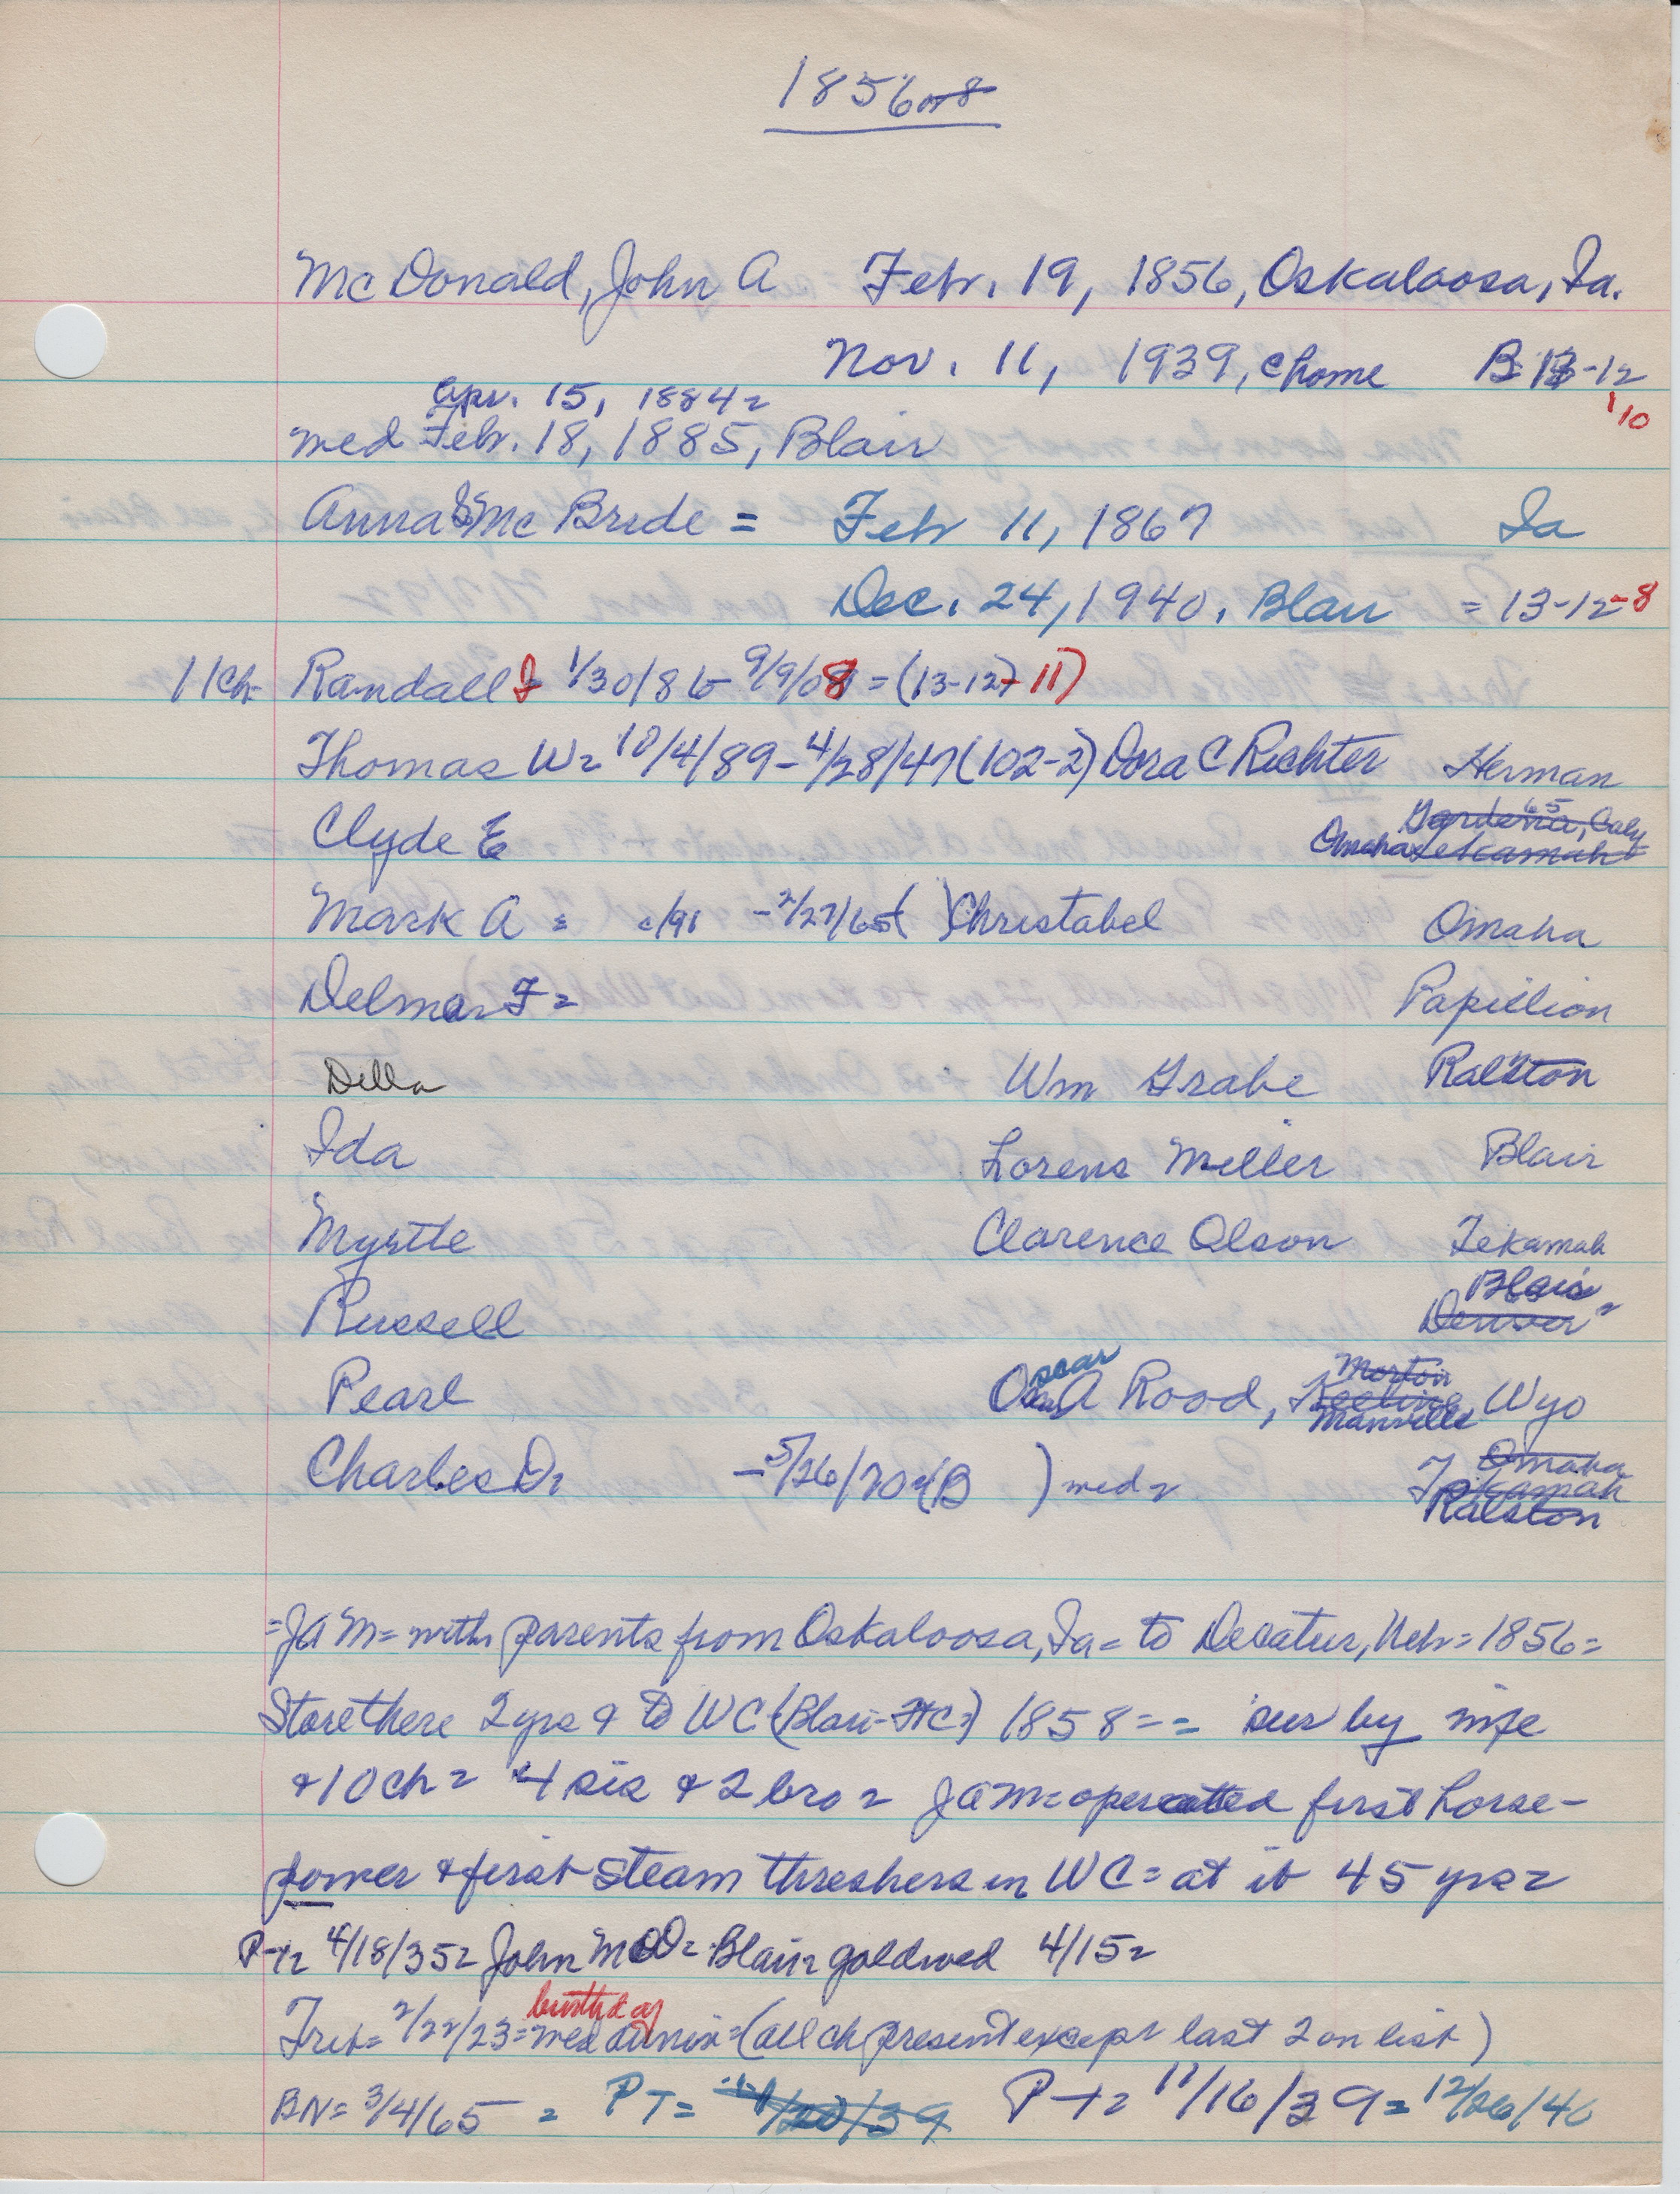 1856 or 8
McDonald, John A Feb. 19, 1856, Oskaloosa, Ia.
Nov. 11, 1939, c home B 13-12
110
Apr. 15, 1884=
med Feb. 18, 1885, Blair
Anna McBride = Feb 11, 1867 Ia
Dec. 24, 1940, Blair = 13-12-8
11 ch- Randall I 1/30/86- 9/9/08 = (13-12-11)
Thomas W = 10/4/89 - 4/28/47 (102-2) Dora C Richter Herman
65
Gardena, Caly
Clyde E Omaha Tekamah
Mark A = c/91 - 2/27/65 ( ) Christabel Omaha
Delmar F = Papillion
Della Wm Grabe Ralston
Ida Lorens Miller Blair
Myrtle Clarence Olson Tekamah
Blair
Russell Denver
Oscar Morton
Pearl A Rood, Keeline, Wyo
Manville
Omaha
Charles D= - 5/26/70 = (B ) med = Tekamah
Ralston
=JAM= with parents from Oskaloosa, Ia = to Decatur, Neb = 1856 =
Store there 2 yrs & to WC (Blair-FtC=) 1858 == sur by wife
& 10 ch = 4 sis & 2 bro = JAM= operated first horse-
power & first steam threshers in WC = at it 45 yrs =
P-T= 4/18/35 = John McD = Blair = gold wed 4/15 =
birthday
Trib = 2/22/23 = wed anniv = (all ch present except last 2 on list)
BN = 3/4/65 = PT = 11/20/39 P-T = 11/16/39 = 12/26/40